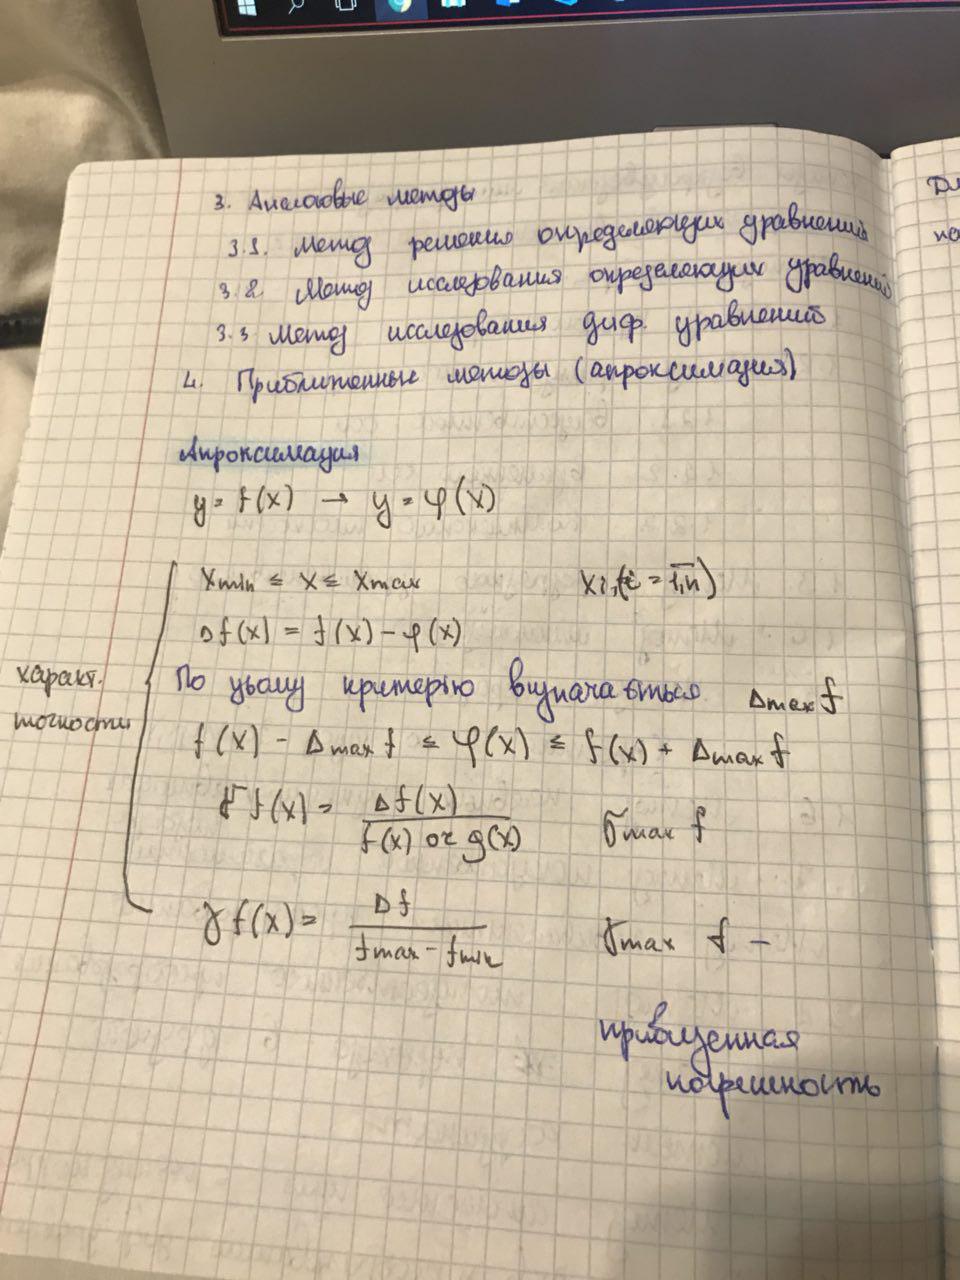 3. Аналоговые методы
3.1. Метод решения определяющих уравнений
3.2. Метод исследования определяющих уравнений
3.3 Метод исследования диф. уравнений
4. Приближенные методы (апроксимация)
Апроксимация
y = f(x) → y = φ(x)
xmin ≤ x ≤ xmax xi, (i = 1,n)
Δf(x) = f(x) - φ(x)
По цьому критерію визначається Δmax f
характ. точности
f(x) - Δmax f ≤ φ(x) ≤ f(x) + Δmax f
δ f(x) = Δf(x) / f(x) or g(x) δmax f
γ f(x) = Δf / fmax - fmin γmax f –
приведенная
погрешность